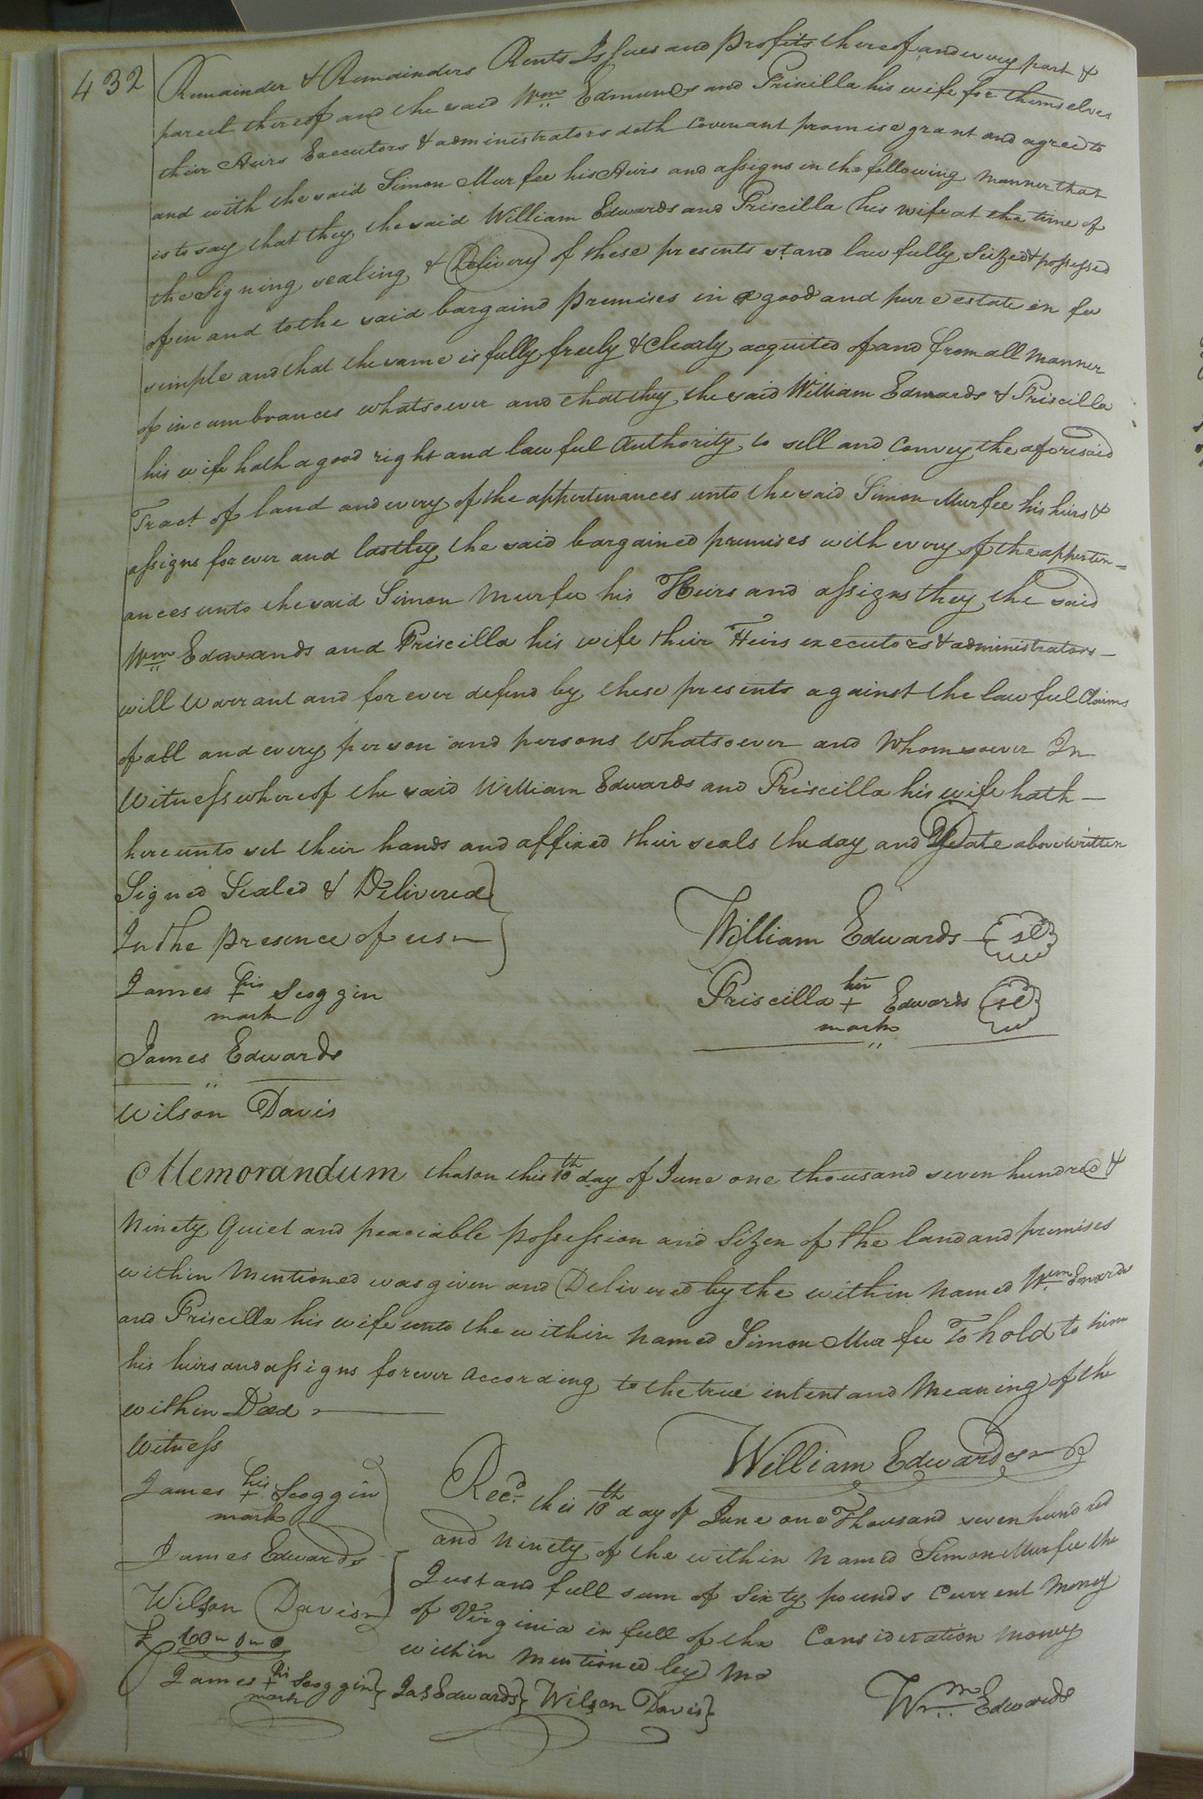 432
Remainder & Remainders Rents Issues and profits thereof and every part &
parcel thereof and the said Wm Edmunds and Priscilla his wife for themselves
their Heirs Executors & administrators doth Covenant promise grant and agree to
and with the said Simon Murfee his Heirs and assigns in the following manner that
is to say that they the said William Edwards and Priscilla his wife at the time of
the Signing sealing & Delivery of these presents stand lawfully Seized & possessed
of in and to the said bargaind premises in a good and pure estate in fee
simple and that the same is fully freely & Clearly acquited of and from all manner
of incumbrances whatsoever and that they the said William Edwards & Priscilla
his wife hath a good right and lawful Authority to sell and Convey the aforesaid
Tract of land and every of the appertinances unto the said Simon Murfee his heirs &
assigns forever and lastly the said bargained premises with every of the apperten-
ances unto the said Simon Murfee his Heirs and assigns they the said
Wm Edwards and Priscilla his wife their Heirs executors & administrators-
will Warrant and forever defend by these presents against the lawful Claims
of all and every person and persons whatsoever and whomsoever In
Witness whereof the said William Edwards and Priscilla his wife hath-
hereunto set their hands and affixed their seals the day and Date above written
Signed Sealed & Delivered
In the presence of us
William Edwards
James his + Scoggin
mark
Priscilla her + Edwards
mark
James Edwards
Wilson Davis
Memorandum that on this 10th day of June one thousand seven hundred &
Ninety Quiet and peaciable possession and Sizen of the land and premises
within Mentioned was given and Delivered by the within Named Wm Edwards
and Priscilla his wife unto the within named Simon Murfee To hold to him
his heirs and assigns forever according to the true intent and Meaning of the
within Deed
Witness
William Edwards
James his + Scoggin
mark
James Edwards
Wilson Davis
Recd this 10th day of June one Thousand seven hundred
and Ninety of the within Named Simon Murfee the
Just and full sum of Sixty pounds Current Money
of Virginia in full of the Consideration money
within Mentioned by me
James his + Scoggin Jas Edwards Wilson Davis
mark
Wm Edwards